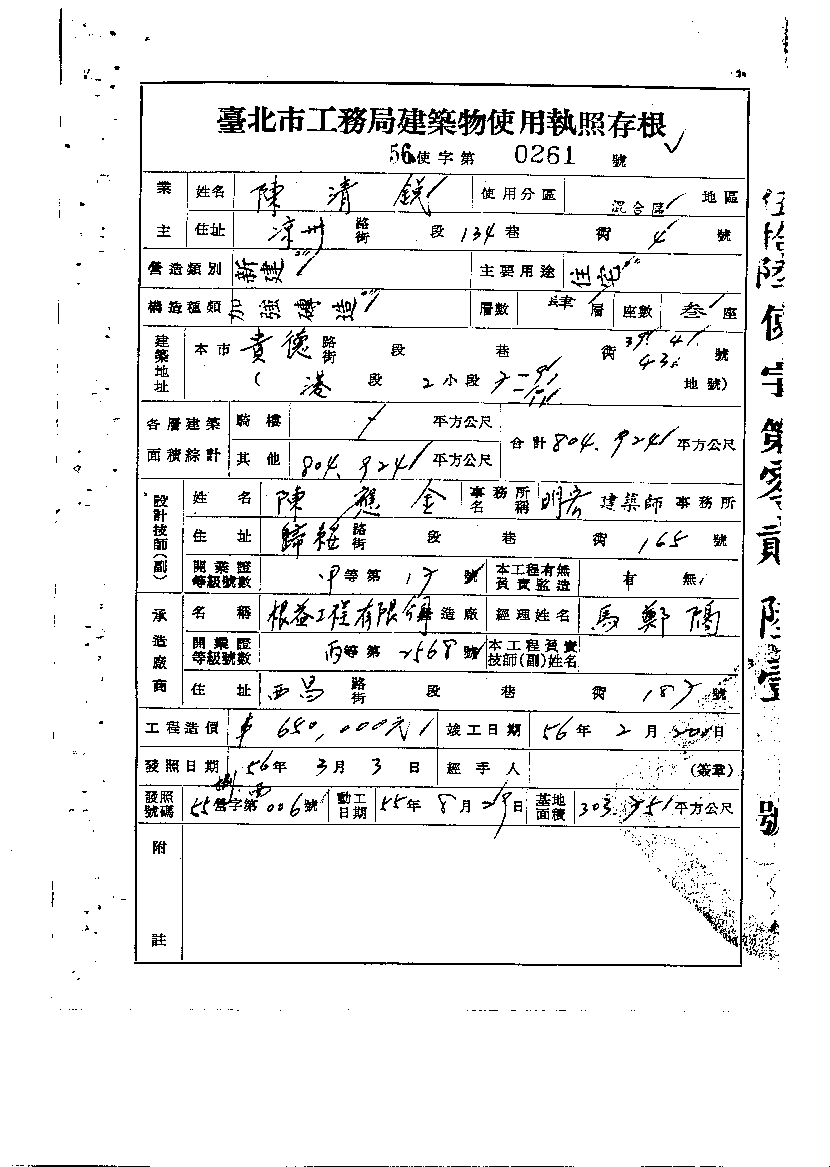 臺北市工務局建築物使用執照存根
56使字第 0261 號
業主 姓名 陳清鋭 使用分區 混合區 地區
住址 涼州 路街 段 134巷 街 4 號
營造類別 新建 主要用途 住宅
構造種類 加強磚造 層數 肆層 座數 叁座
建築地址 本市 貴德 路街 段 巷 街 39. 41. 43. 號
( 港 段 2 小段 地號)
各層建築面積綜計 騎樓 平方公尺 合計 804.924 平方公尺
其他 804.924 平方公尺
設計技師(副) 姓名 陳應金 事務所名稱 明宏 建築師事務所
住址 歸綏 路街 段 巷 街 165 號
開業證等級號數 甲等第 17 號 本工程有無負責監造 有 無
承造廠商 名稱 根益工程有限 營造廠 經理姓名 馬鄭陽
開業證等級號數 丙等第 2568 號 本工程負責技師(副)姓名
住址 西昌 路街 段 巷 街 187 號
工程造價 650,000元 竣工日期 56年2月20日
發照日期 56年3月3日 經手人 (簽章)
發照號碼 55營字第006號 動工日期 55年8月29日 基地面積 303.751 平方公尺
附註
伍拾陸使字第零貳陸壹號